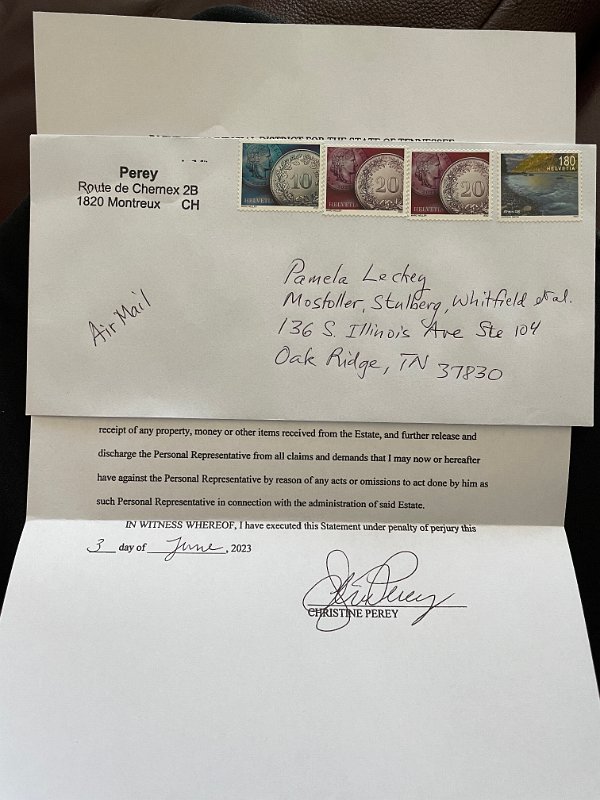 DISTRICT FOR THE STATE OF TENNESSEE
Perey
Route de Chernex 2B
1820 Montreux CH
10
HELVETIA
20
HELVETIA
20
HELVETIA
180
HELVETIA
Air Mail
Pamela Leckey
Mostoller, Stulberg, Whitfield et al.
136 S. Illinois Ave Ste 104
Oak Ridge, TN 37830
receipt of any property, money or other items received from the Estate, and further release and
discharge the Personal Representative from all claims and demands that I may now or hereafter
have against the Personal Representative by reason of any acts or omissions to act done by him as
such Personal Representative in connection with the administration of said Estate.
IN WITNESS WHEREOF, I have executed this Statement under penalty of perjury this
3 day of June, 2023
CHRISTINE PEREY